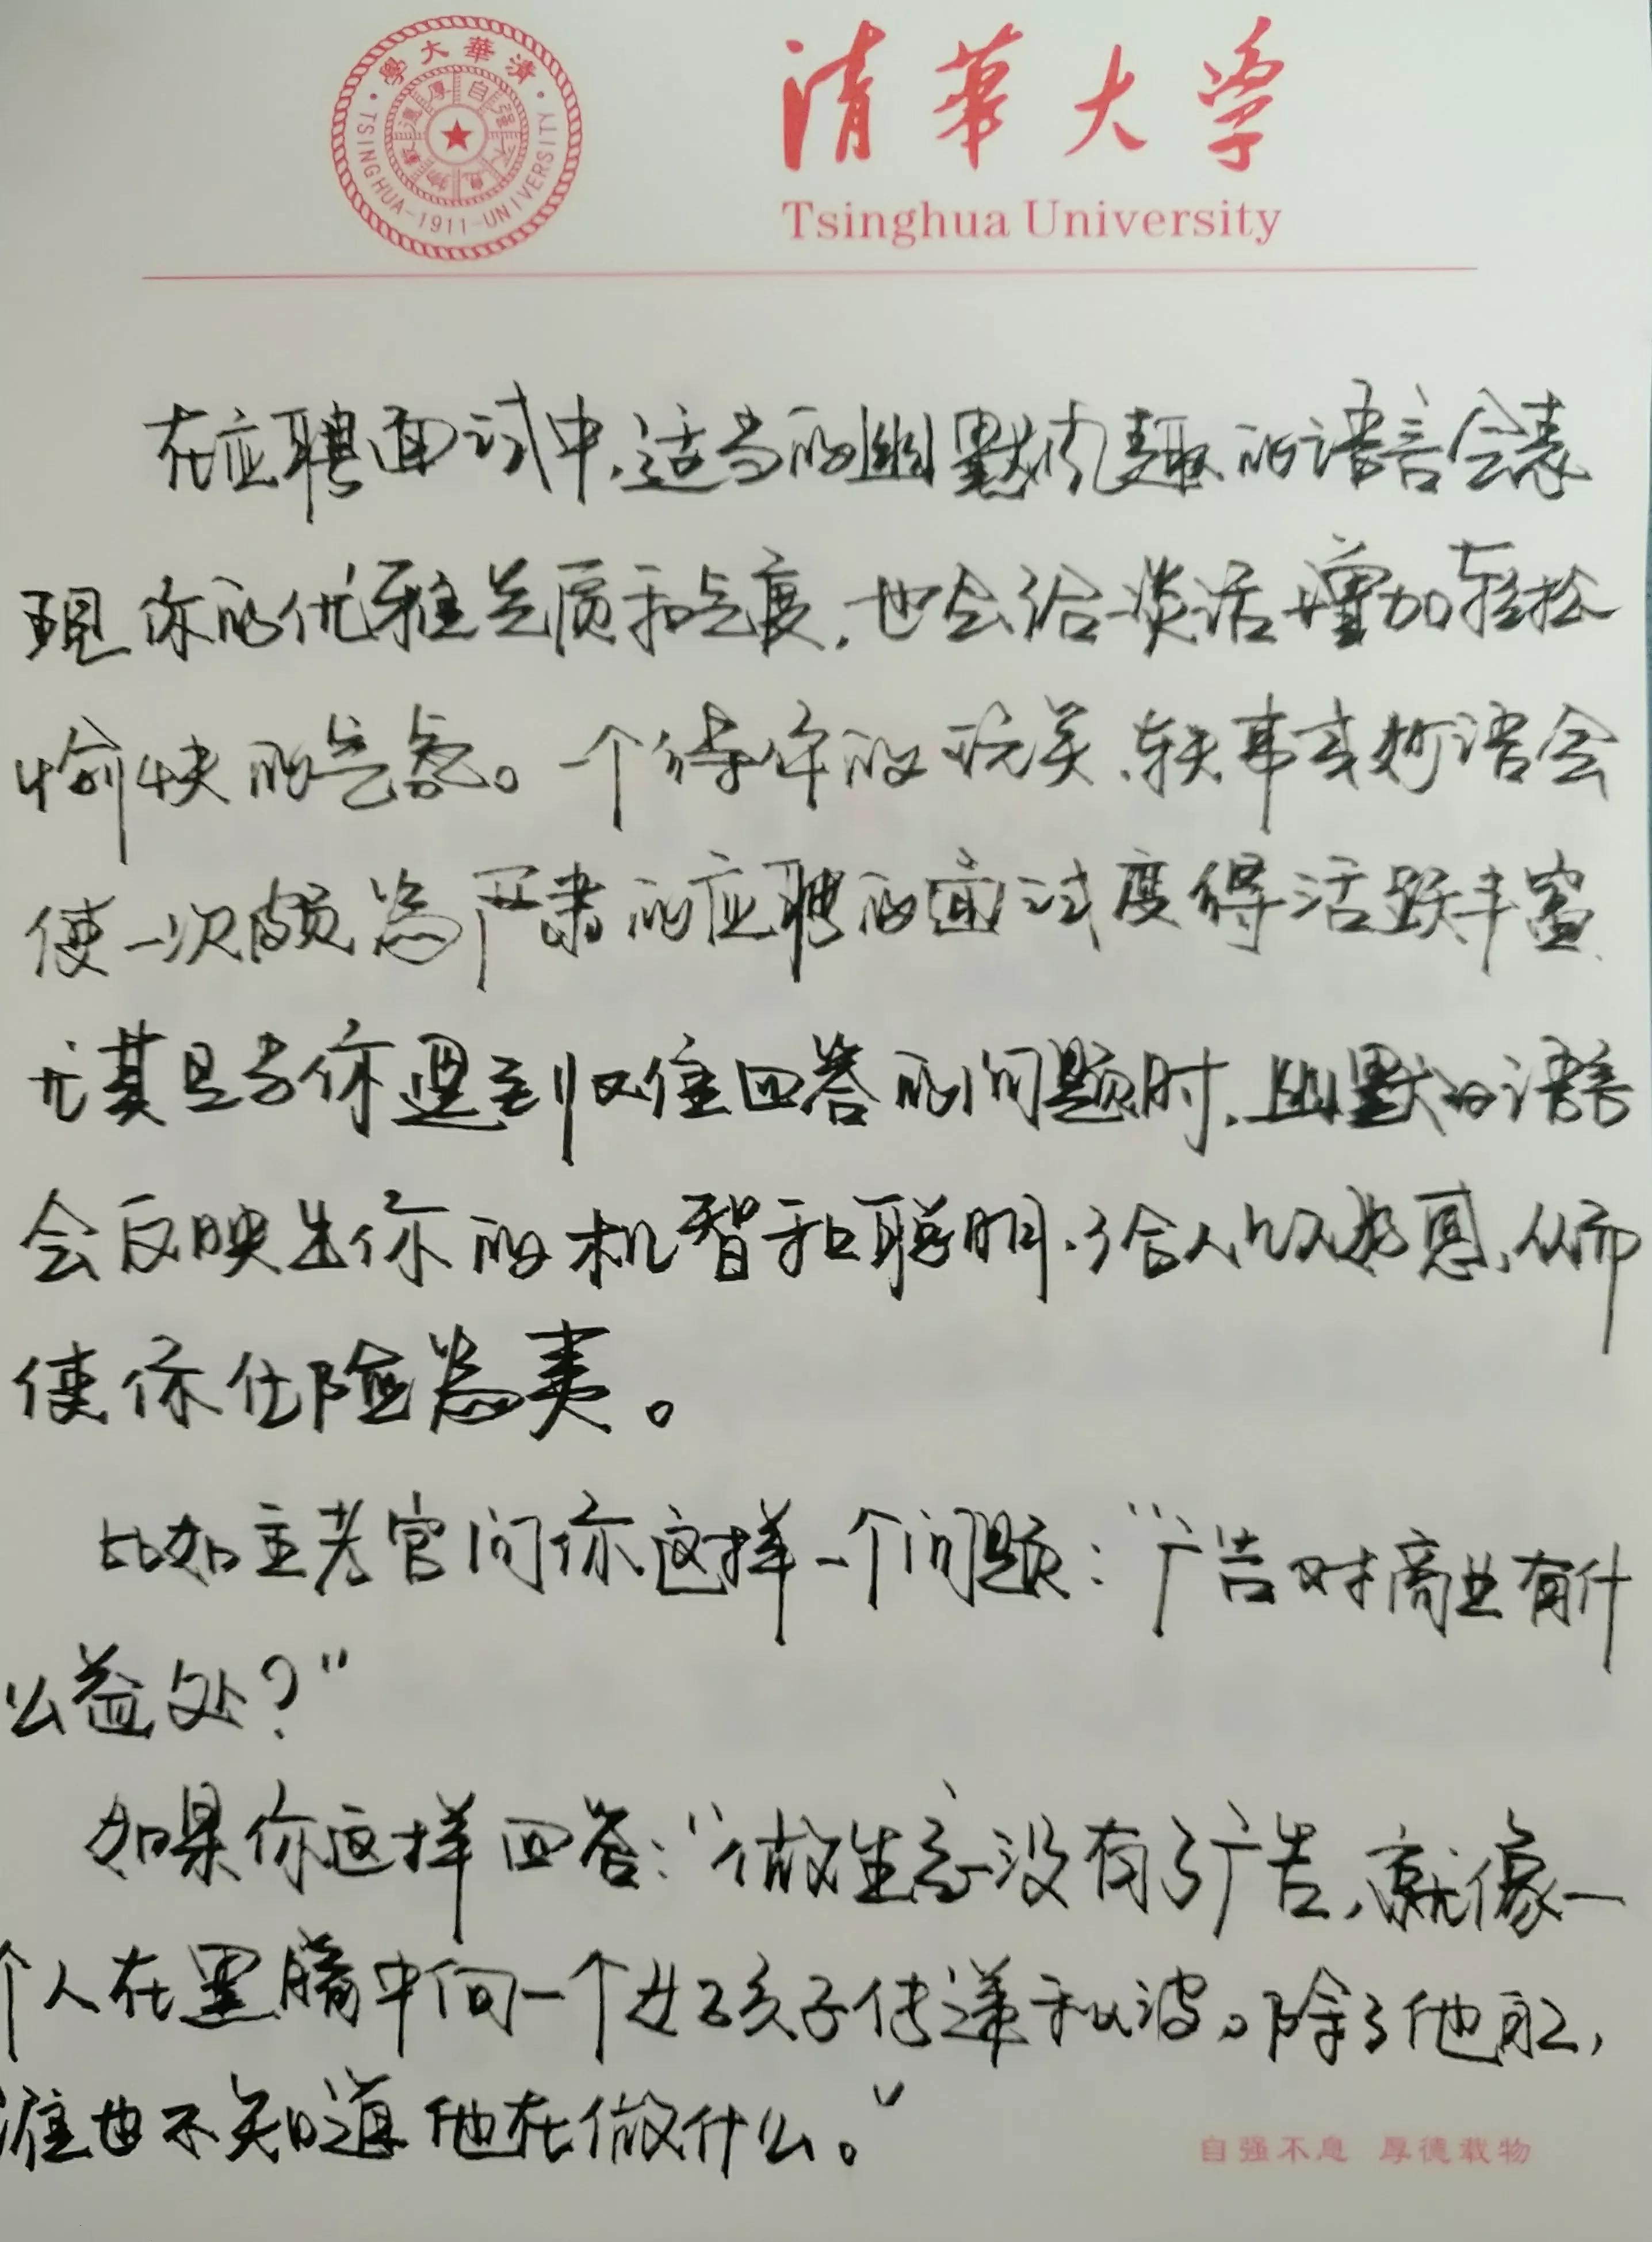 清華大學
TSINGHUA-1911-UNIVERSITY
自强不息
厚德載物
清华大学
Tsinghua University
在应聘面试中,适当的幽默风趣的语言会表
现你的优雅气质和气度,也会给谈话增加轻松
愉快的气氛。一个得体的玩笑、轶事或妙语会
使一次颇为严肃的应聘的面试变得活跃丰富、
尤其是当你遇到难回答的问题时,幽默的语言
会反映出你的机智和聪明,给人以好感,从而
使你化险为夷。
比如主考官问你这样一个问题:“广告对商业有什
么益处?”
如果你这样回答:“做生意没有了广告,就像一
个人在黑暗中向一个女孩子传递秋波。除了他自己,
谁也不知道他在做什么。”
自强不息 厚德载物